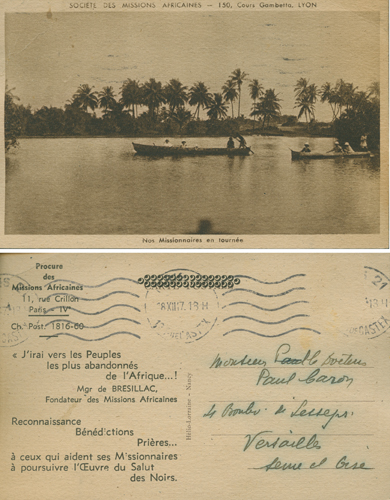 SOCIÉTÉ DES MISSIONS AFRICAINES — 150, Cours Gambetta, LYON
Nos Missionnaires en tournée
Procure
des
Missions Africaines
11, rue Crillon
Paris - IVe
Ch. Post. 1816-60
« J'irai vers les Peuples
les plus abandonnés
de l'Afrique...!
Mgr de BRESILLAC,
Fondateur des Missions Africaines
Reconnaissance
Bénédictions
Prières...
à ceux qui aident ses Missionnaires
à poursuivre l'Œuvre du Salut
des Noirs.
Hélio-Lorraine - Nancy
21
Monsieur le Docteur
Paul Caron
de Lesseps
Versailles
Seine et Oise